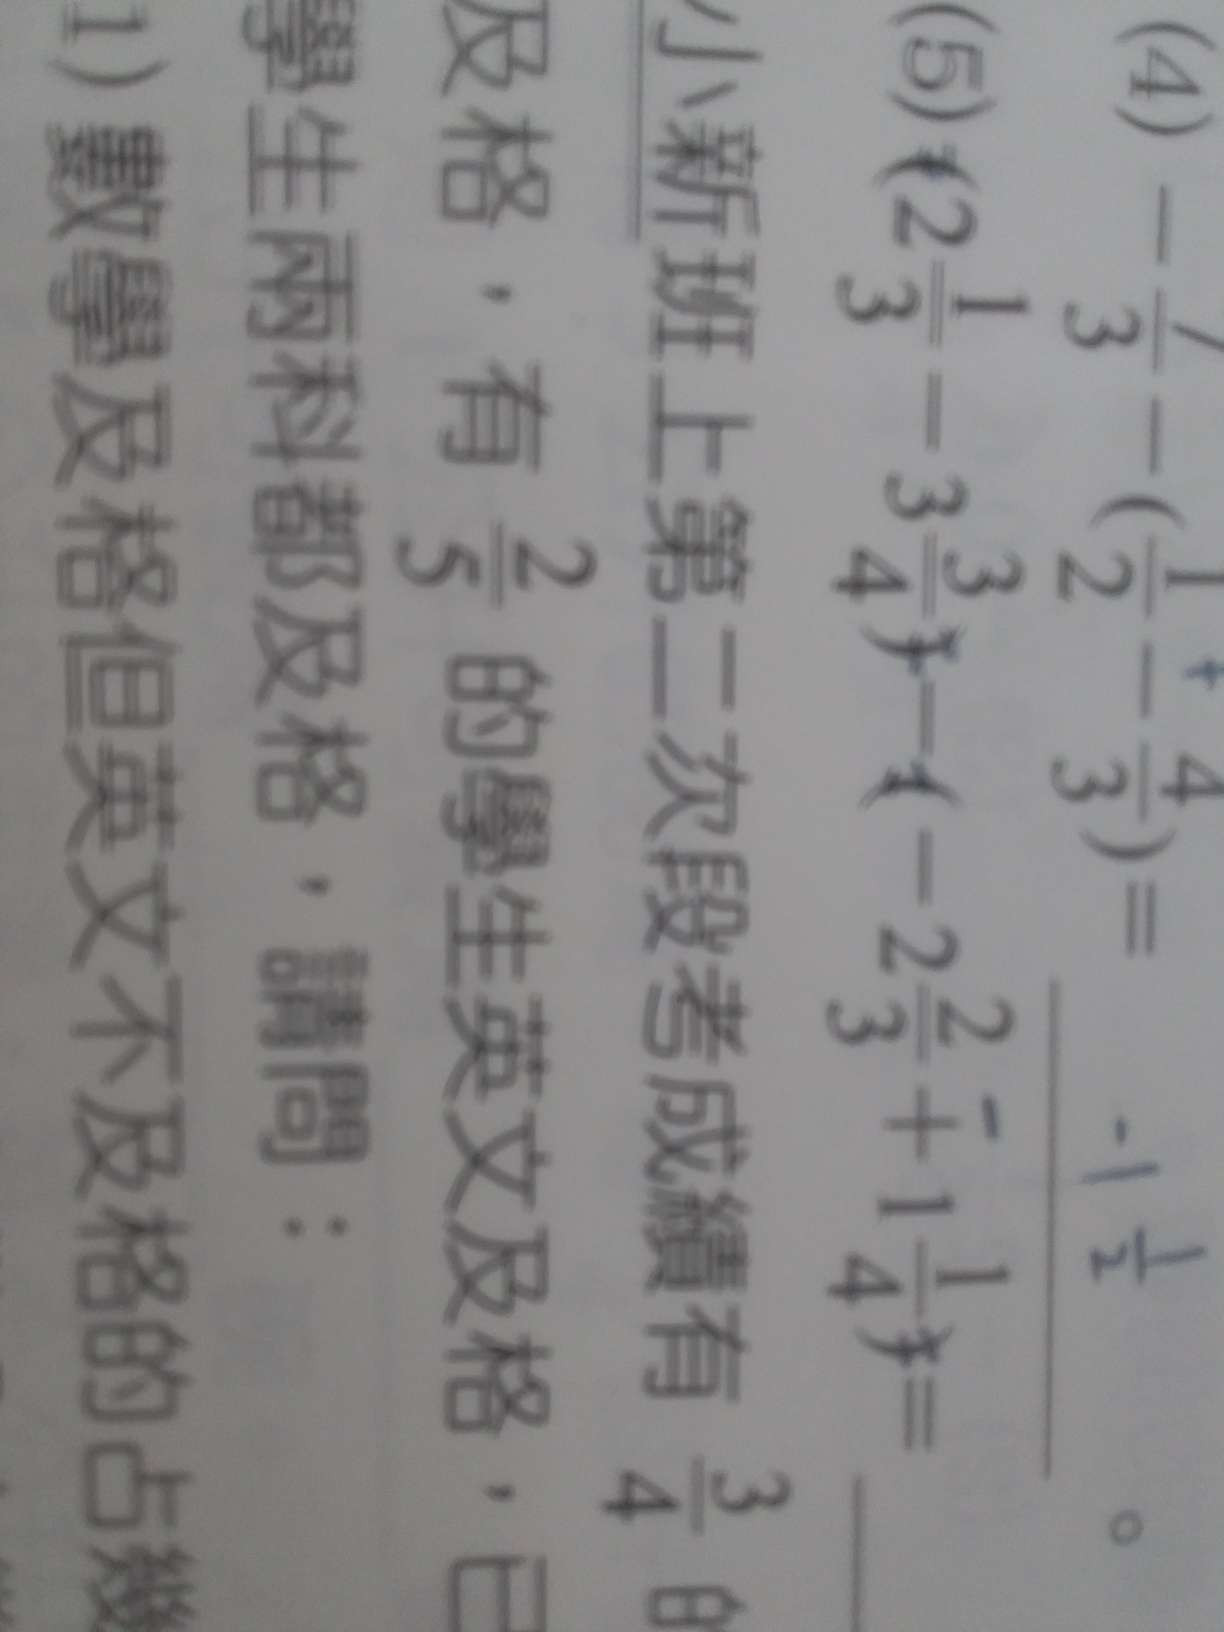 (4) -7/3-(1/2-4/3)= -1 1/2 。
(5) (2 1/3-3 3/4)-(-2 2/3+1 1/4)=
小新班上第二次段考成績有 3/4 的
及格，有 2/5 的學生英文及格，已
學生兩科都及格，請問：
1) 數學及格但英文不及格的占幾